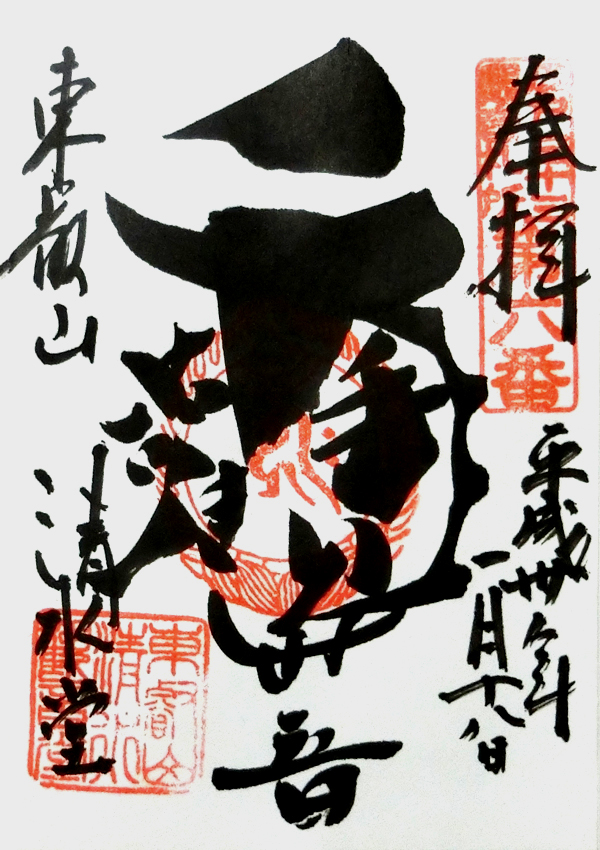 奉拝
第六番
平成卅
一月十八日
千手
観音
東叡山
清水堂
東叡山
清水